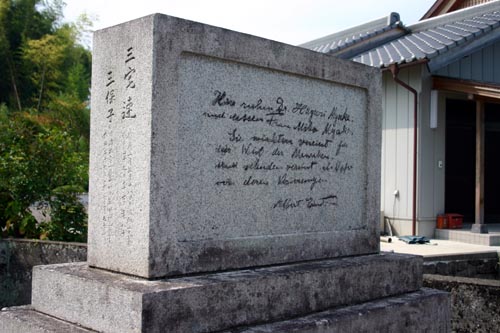 三宅速
三保子
Hier ruhen Dr. Hayasi Miyake
und dessen Frau Miho Miyake.
Sie wirkten vereint für
das Wohl der Menschen.
und schieden vereint als Opfer
von deren Verirrungen.
Albert Einstein